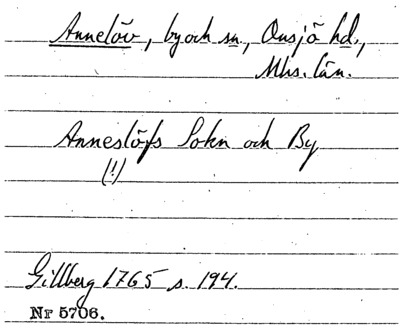 Annelöv, by och sn, Onsjö hd.,
Mhs. län.
Anneslöfs Sokn och By
(!)
Gillberg 1765 s. 194.
Nr 5706.